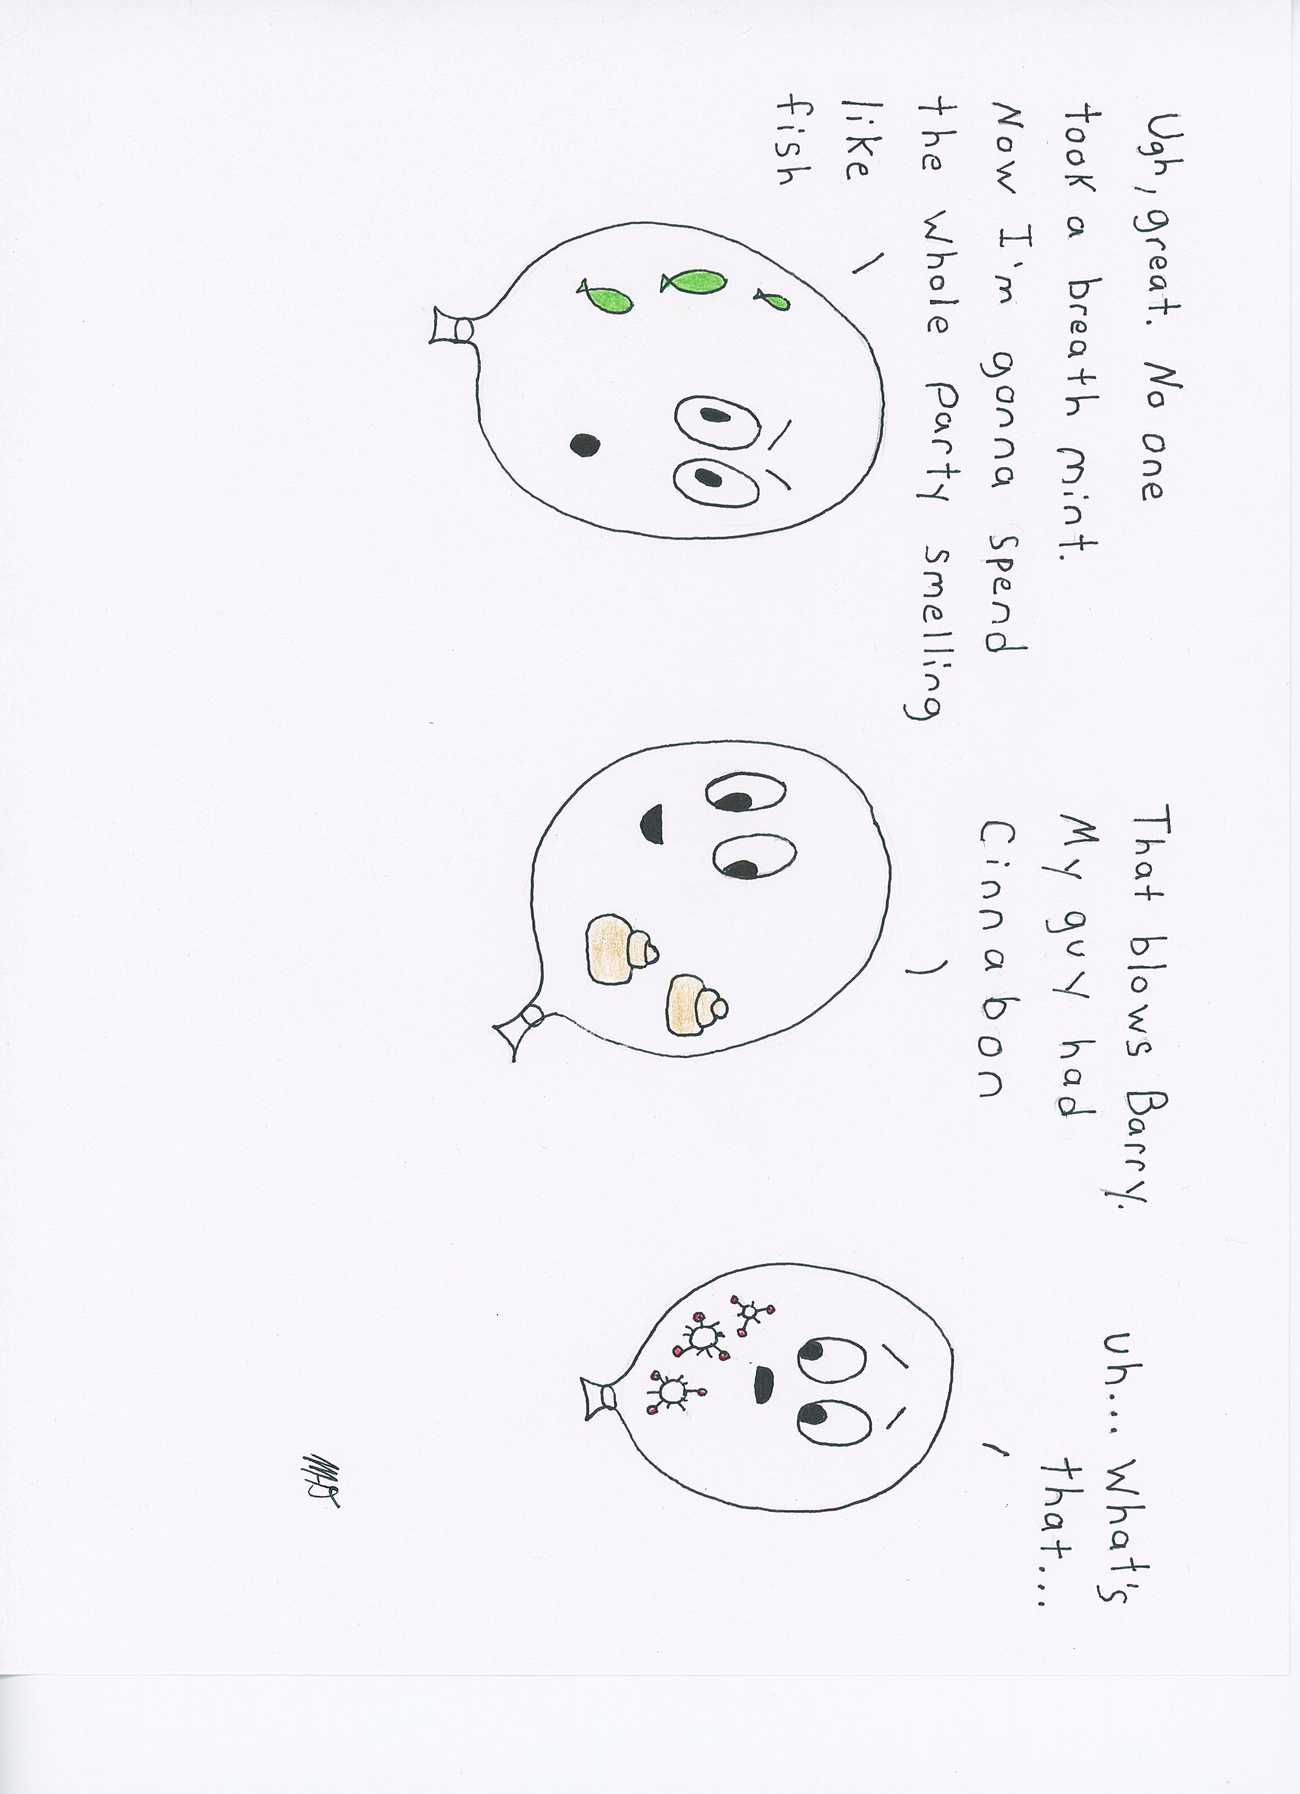 Ugh, great. No one
took a breath mint.
Now I'm gonna spend
the whole party smelling
like
fish
That blows Barry.
My guy had
Cinnabon
uh... What's
that...